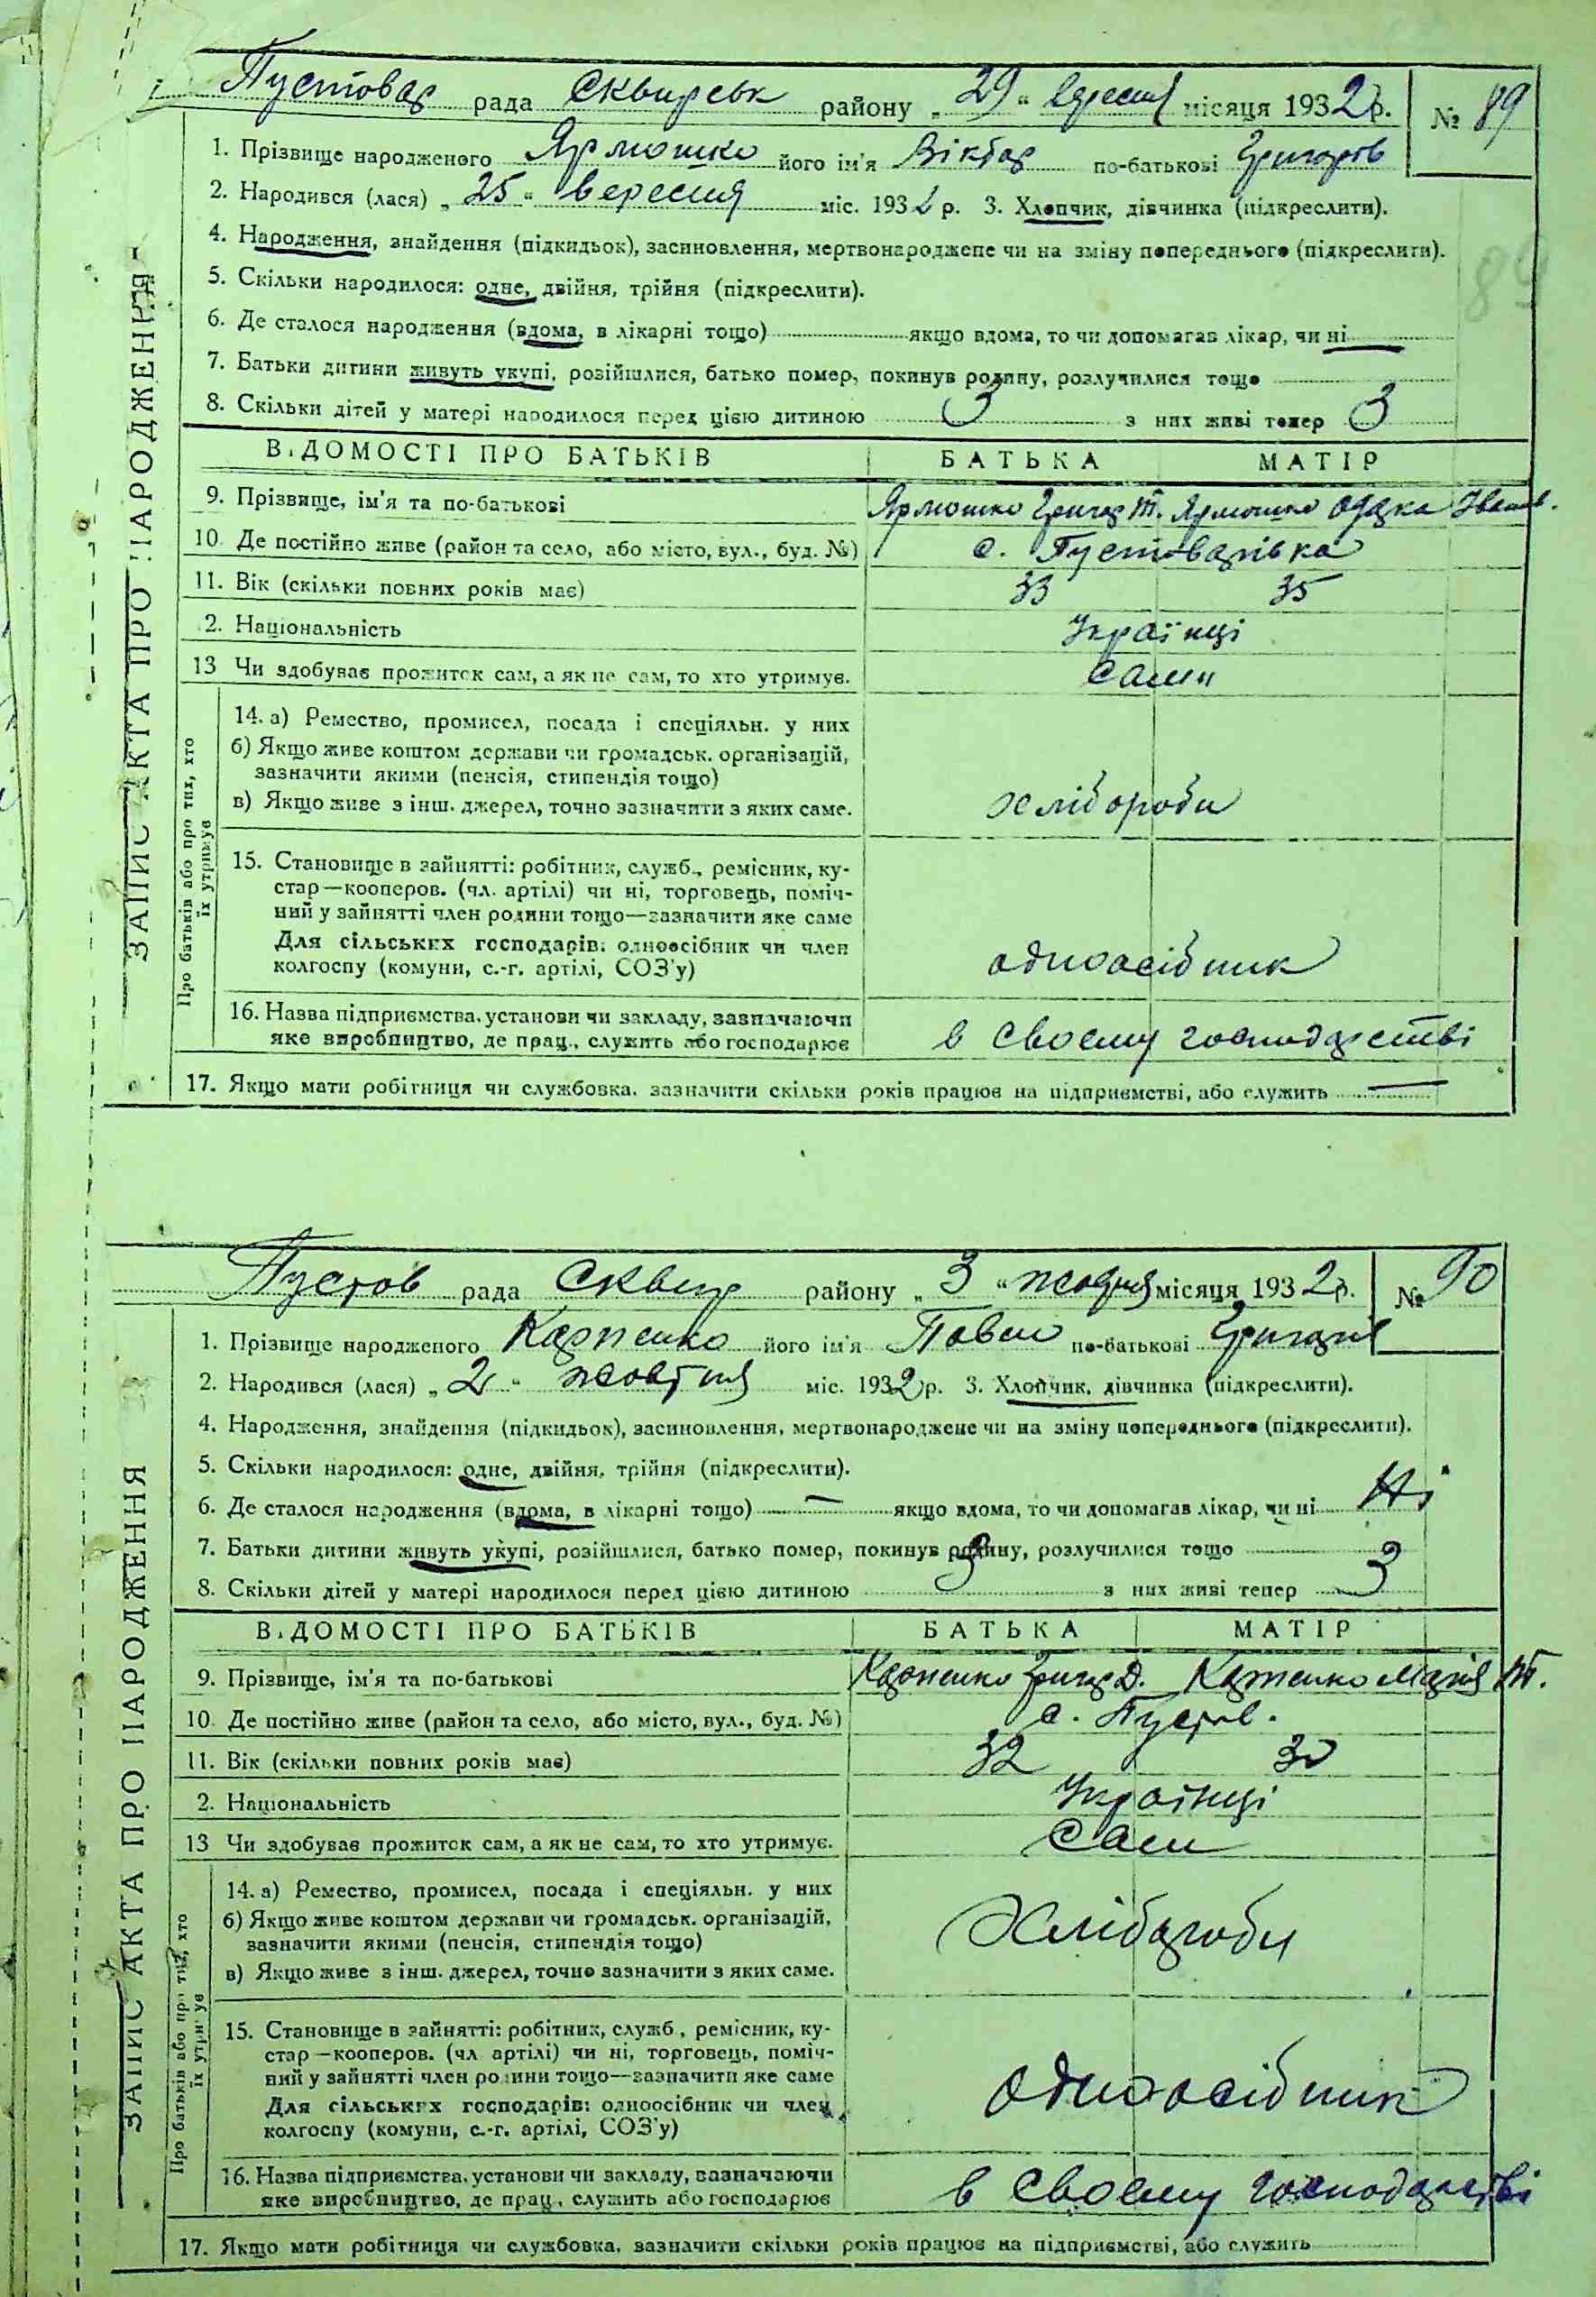 Пустовар рада Сквирськ району „29“ вересня місяця 1932 р. № 89
1. Прізвище народженого Ярмошко його ім'я Віктор по-батькові Григоров
2. Народився (лася) „25“ вересня міс. 1932 р. 3. Хлопчик, дівчинка (підкреслити).
4. Народження, знайдення (підкидьок), засиновлення, мертвонароджене чи на зміну попереднього (підкреслити).
5. Скільки народилося: одне, двійня, трійня (підкреслити).
6. Де сталося народження (вдома, в лікарні тощо) якщо вдома, то чи допомагав лікар, чи ні
7. Батьки дитини живуть укупі, розійшлися, батько помер, покинув родину, розлучилися тощо
8. Скільки дітей у матері народилося перед цією дитиною 3 з них живі тепер 3
ВІДОМОСТІ ПРО БАТЬКІВ БАТЬКА МАТІР
9. Прізвище, ім'я та по-батькові Ярмошко Григор Т. Ярмошко Одарка Іванів.
10. Де постійно живе (район та село, або місто, вул., буд. №) с. Пустоварівка
11. Вік (скільки повних років має) 33 35
2. Національність Українці
13 Чи здобуває прожиток сам, а як не сам, то хто утримує. сами
14. а) Ремество, промисел, посада і спеціяльн. у них
б) Якщо живе коштом держави чи громадськ. організацій,
зазначити якими (пенсія, стипендія тощо)
в) Якщо живе з інш. джерел, точно зазначити з яких саме. хлібороби
15. Становище в зайнятті: робітник, служб., ремісник, ку-
стар—кооперов. (чл. артілі) чи ні, торговець, поміч-
ний у зайнятті член родини тощо—зазначити яке саме
Для сільських господарів: одноосібник чи член
колгоспу (комуни, с.-г. артілі, СОЗ'у) одноосібник
16. Назва підприємства, установи чи закладу, зазначаючи
яке виробництво, де прац., служить або господарює в своєму господарстві
17. Якщо мати робітниця чи службовка, зазначити скільки років працює на підприємстві, або служить —
ЗАПИС АКТА ПРО НАРОДЖЕННЯ
Про батьків або про тих, хто
їх утримує
89
Пустов рада Сквир району „3“ жовтня місяця 1932 р. № 90
1. Прізвище народженого Карпенко його ім'я Павло по-батькові Григорів
2. Народився (лася) „2“ жовтня міс. 1932 р. 3. Хлопчик, дівчинка (підкреслити).
4. Народження, знайдення (підкидьок), засиновлення, мертвонароджене чи на зміну попереднього (підкреслити).
5. Скільки народилося: одне, двійня, трійня (підкреслити).
6. Де сталося народження (вдома, в лікарні тощо) — якщо вдома, то чи допомагав лікар, чи ні Ні
7. Батьки дитини живуть укупі, розійшлися, батько помер, покинув родину, розлучилися тощо
8. Скільки дітей у матері народилося перед цією дитиною 3 з них живі тепер 3
ВІДОМОСТІ ПРО БАТЬКІВ БАТЬКА МАТІР
9. Прізвище, ім'я та по-батькові Карпенко Григор Д. Карпенко Марія Т.
10. Де постійно живе (район та село, або місто, вул., буд. №) с. Пустов.
11. Вік (скільки повних років має) 32 30
2. Національність Українці
13 Чи здобуває прожиток сам, а як не сам, то хто утримує. сами
14. а) Ремество, промисел, посада і спеціяльн. у них
б) Якщо живе коштом держави чи громадськ. організацій,
зазначити якими (пенсія, стипендія тощо)
в) Якщо живе з інш. джерел, точно зазначити з яких саме. Хлібороби
15. Становище в зайнятті: робітник, служб., ремісник, ку-
стар—кооперов. (чл артілі) чи ні, торговець, поміч-
ний у зайнятті член родини тощо—зазначити яке саме
Для сільських господарів: одноосібник чи член
колгоспу (комуни, с.-г. артілі, СОЗ'у) одноосібник
16. Назва підприємства, установи чи закладу, зазначаючи
яке виробництво, де прац., служить або господарює в своєму господарстві
17. Якщо мати робітниця чи службовка, зазначити скільки років працює на підприємстві, або служить
ЗАПИС АКТА ПРО НАРОДЖЕННЯ
Про батьків або про тих, хто
їх утримує